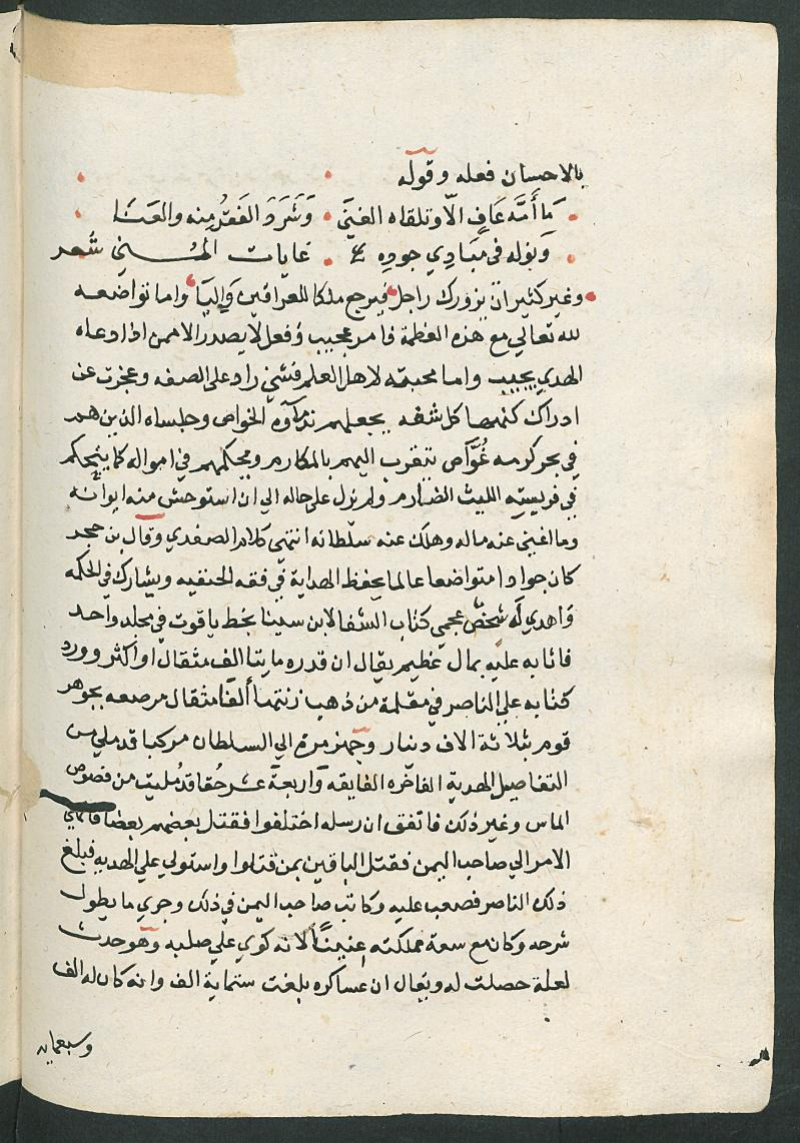 بالاحسان فعله وقوله
ما أمّه عاف الّا وتلقاه الغنى وشرد الفقر منه والعنا
ونوله في مبادي جوده غايات المنى شعر
وغير كثير ان يزورك راجل فيرجع ملكا للعراقين واليا واما تواضعه
لله تعالى مع هذه العظمة فامر عجيب وفعل لا يصدر الا ممن اذا دعاه
الهدى يجيب واما محبته لاهل العلم فشي زاد على الصفه وعجزت عن
ادراك كنهها كل شفه يجعلهم ندماؤه الخواص وجلساه الذين هم
في بحر كرمه غوّاص يتقرب اليهم بالمكارم ويحكمهم في امواله كما يتحكم
في فريسته الليث الضارم ولم يزل على حاله الى ان استوحش منه ايوانه
وما اغنى عنه ماله وهلك عنه سلطانه انتهى كلام الصفدي وقال بن حجر
كان جوادا متواضعا عالما يحفظ الهداية في فقه الحنفيه ويشارك في الحكمه
واهدى له شخص عجمي كتاب الشفا لابن سينا بخط ياقوت في مجلد واحد
فاثابه عليه بمال عظيم يقال ان قدره مايتا الف مثقال او أكثر وورد
كتابه على الناصر في مقلمة من ذهب زنتها ألفا مثقال مرصعه بجوهر
قوم بثلاثة الاف دينار وجهز مرة الى السلطان مركبا قد ملي من
التفاصيل الهدية الفاخره الفايقه واربعة عشر حقا قد مليت من فصوص
الماس وغير ذلك فاتفق ان رسله اختلفوا فقتل بعضهم بعضا فانمى
الامر الى صاحب اليمن فقتل الباقين بمن قتلوا واستولى على الهديه فبلغ
ذلك الناصر فصعب عليه وكاتب صاحب اليمن في ذلك وجرى ما يطول
شرحه وكان مع سعة مملكته عنيناً لانه كوى على صلبه وهو حدث
لعلة حصلت له ويقال ان عساكره بلغت ستماية الف وانه كان له الف
وسبعمايه